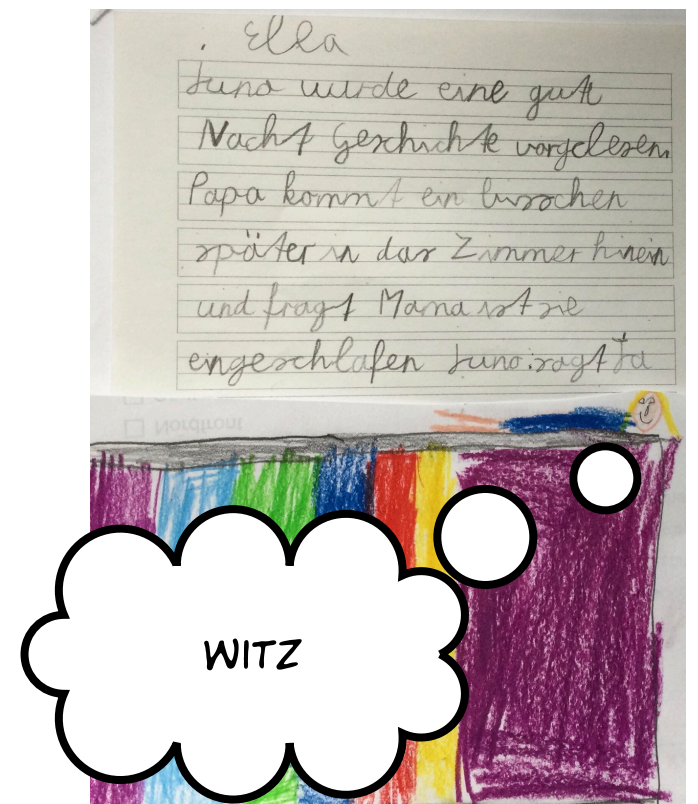 . Ella
Juno wurde eine gute
Nacht Geschichte vorgelesen.
Papa kommt ein bisschen
später in das Zimmer hinein
und fragt Mama ist sie
eingeschlafen Juno.sagt Ja
Nordfront
WITZ